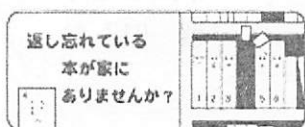 返し忘れている
本が家に
ありませんか？
1 2 3 5 6